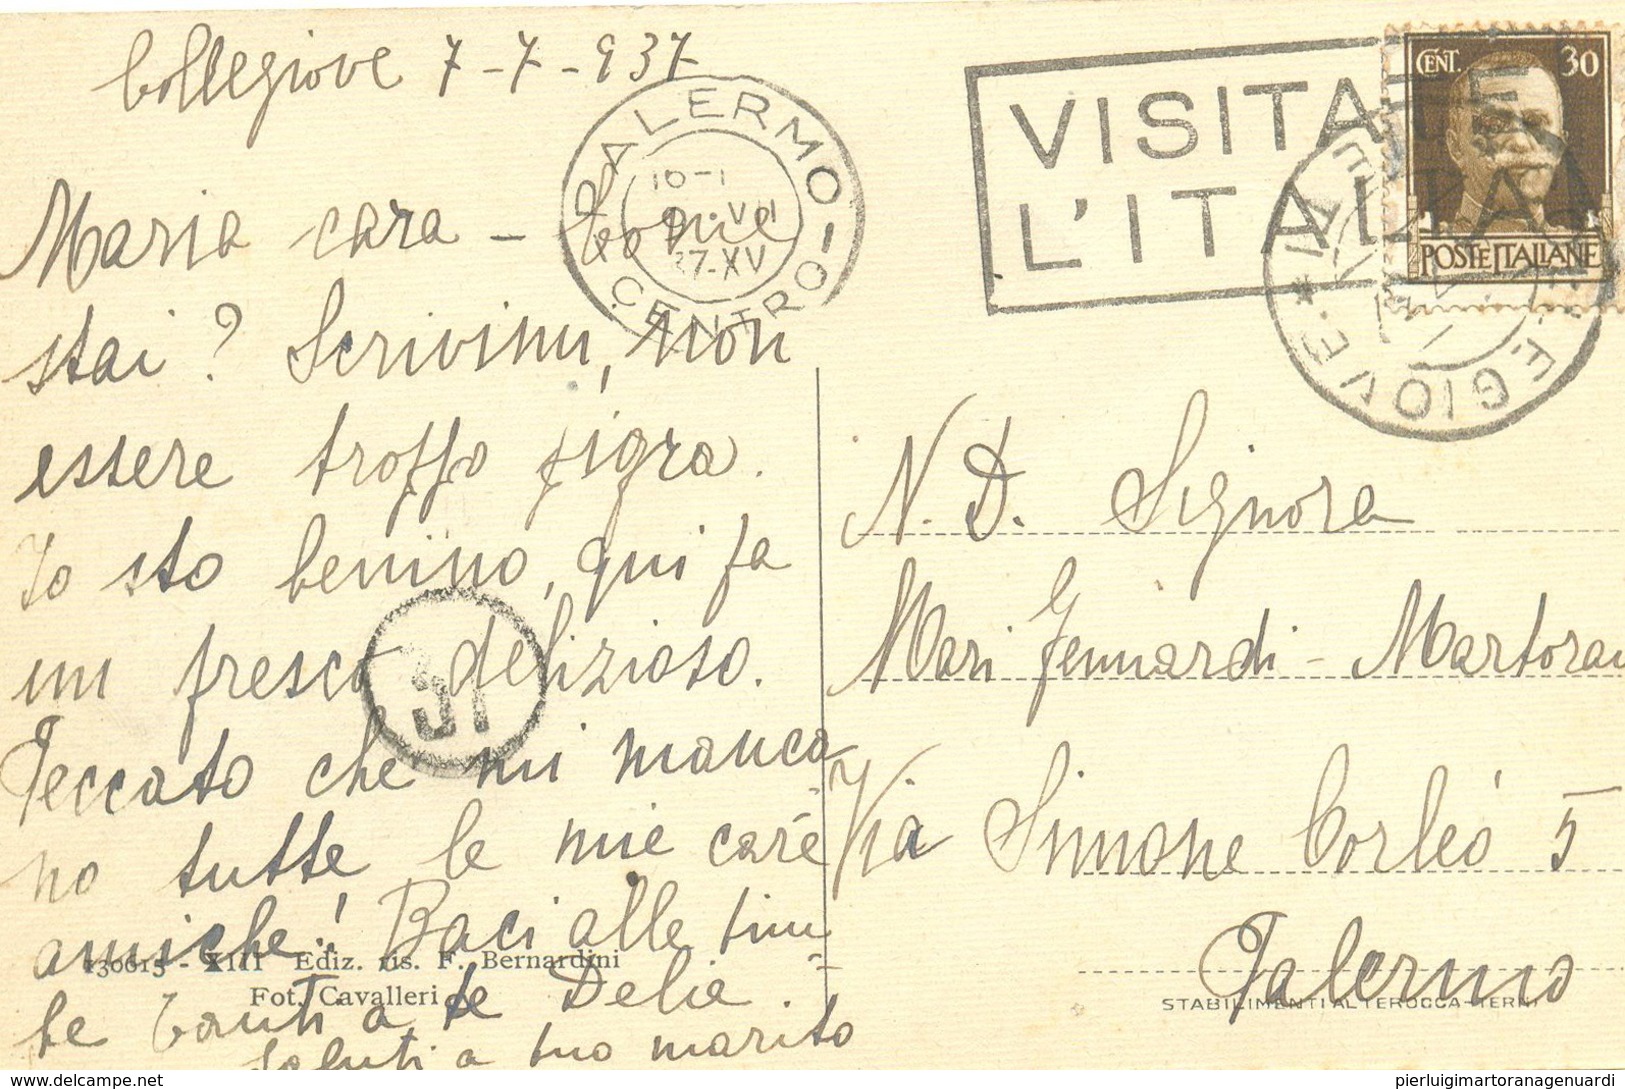 Collegiove 7-7-937
Maria cara - come
stai? Scrivimi, non
essere troppo pigra.
Io sto benino, qui fa
un fresco delizioso.
Peccato che mi manca
no tutte le mie care
amiche! Baci alle bim
be tanti a te Delia.
saluti a tuo marito
130615 - XIII Ediz. ris. F. Bernardini
Fot. Cavalleri
PALERMO
16-1
9. VII
37-XV
CENTRO
VISITATE
L'ITALIA
CENT. 30
POSTE ITALIANE
EGIOVE
31
N. D. Signora
Mari Gennardi - Martorana
Via Simone Corleo 5
Palermo
STABILIMENTI ALTEROCCA-TERNI
www.delcampe.net
pierluigimartoranagenuardi